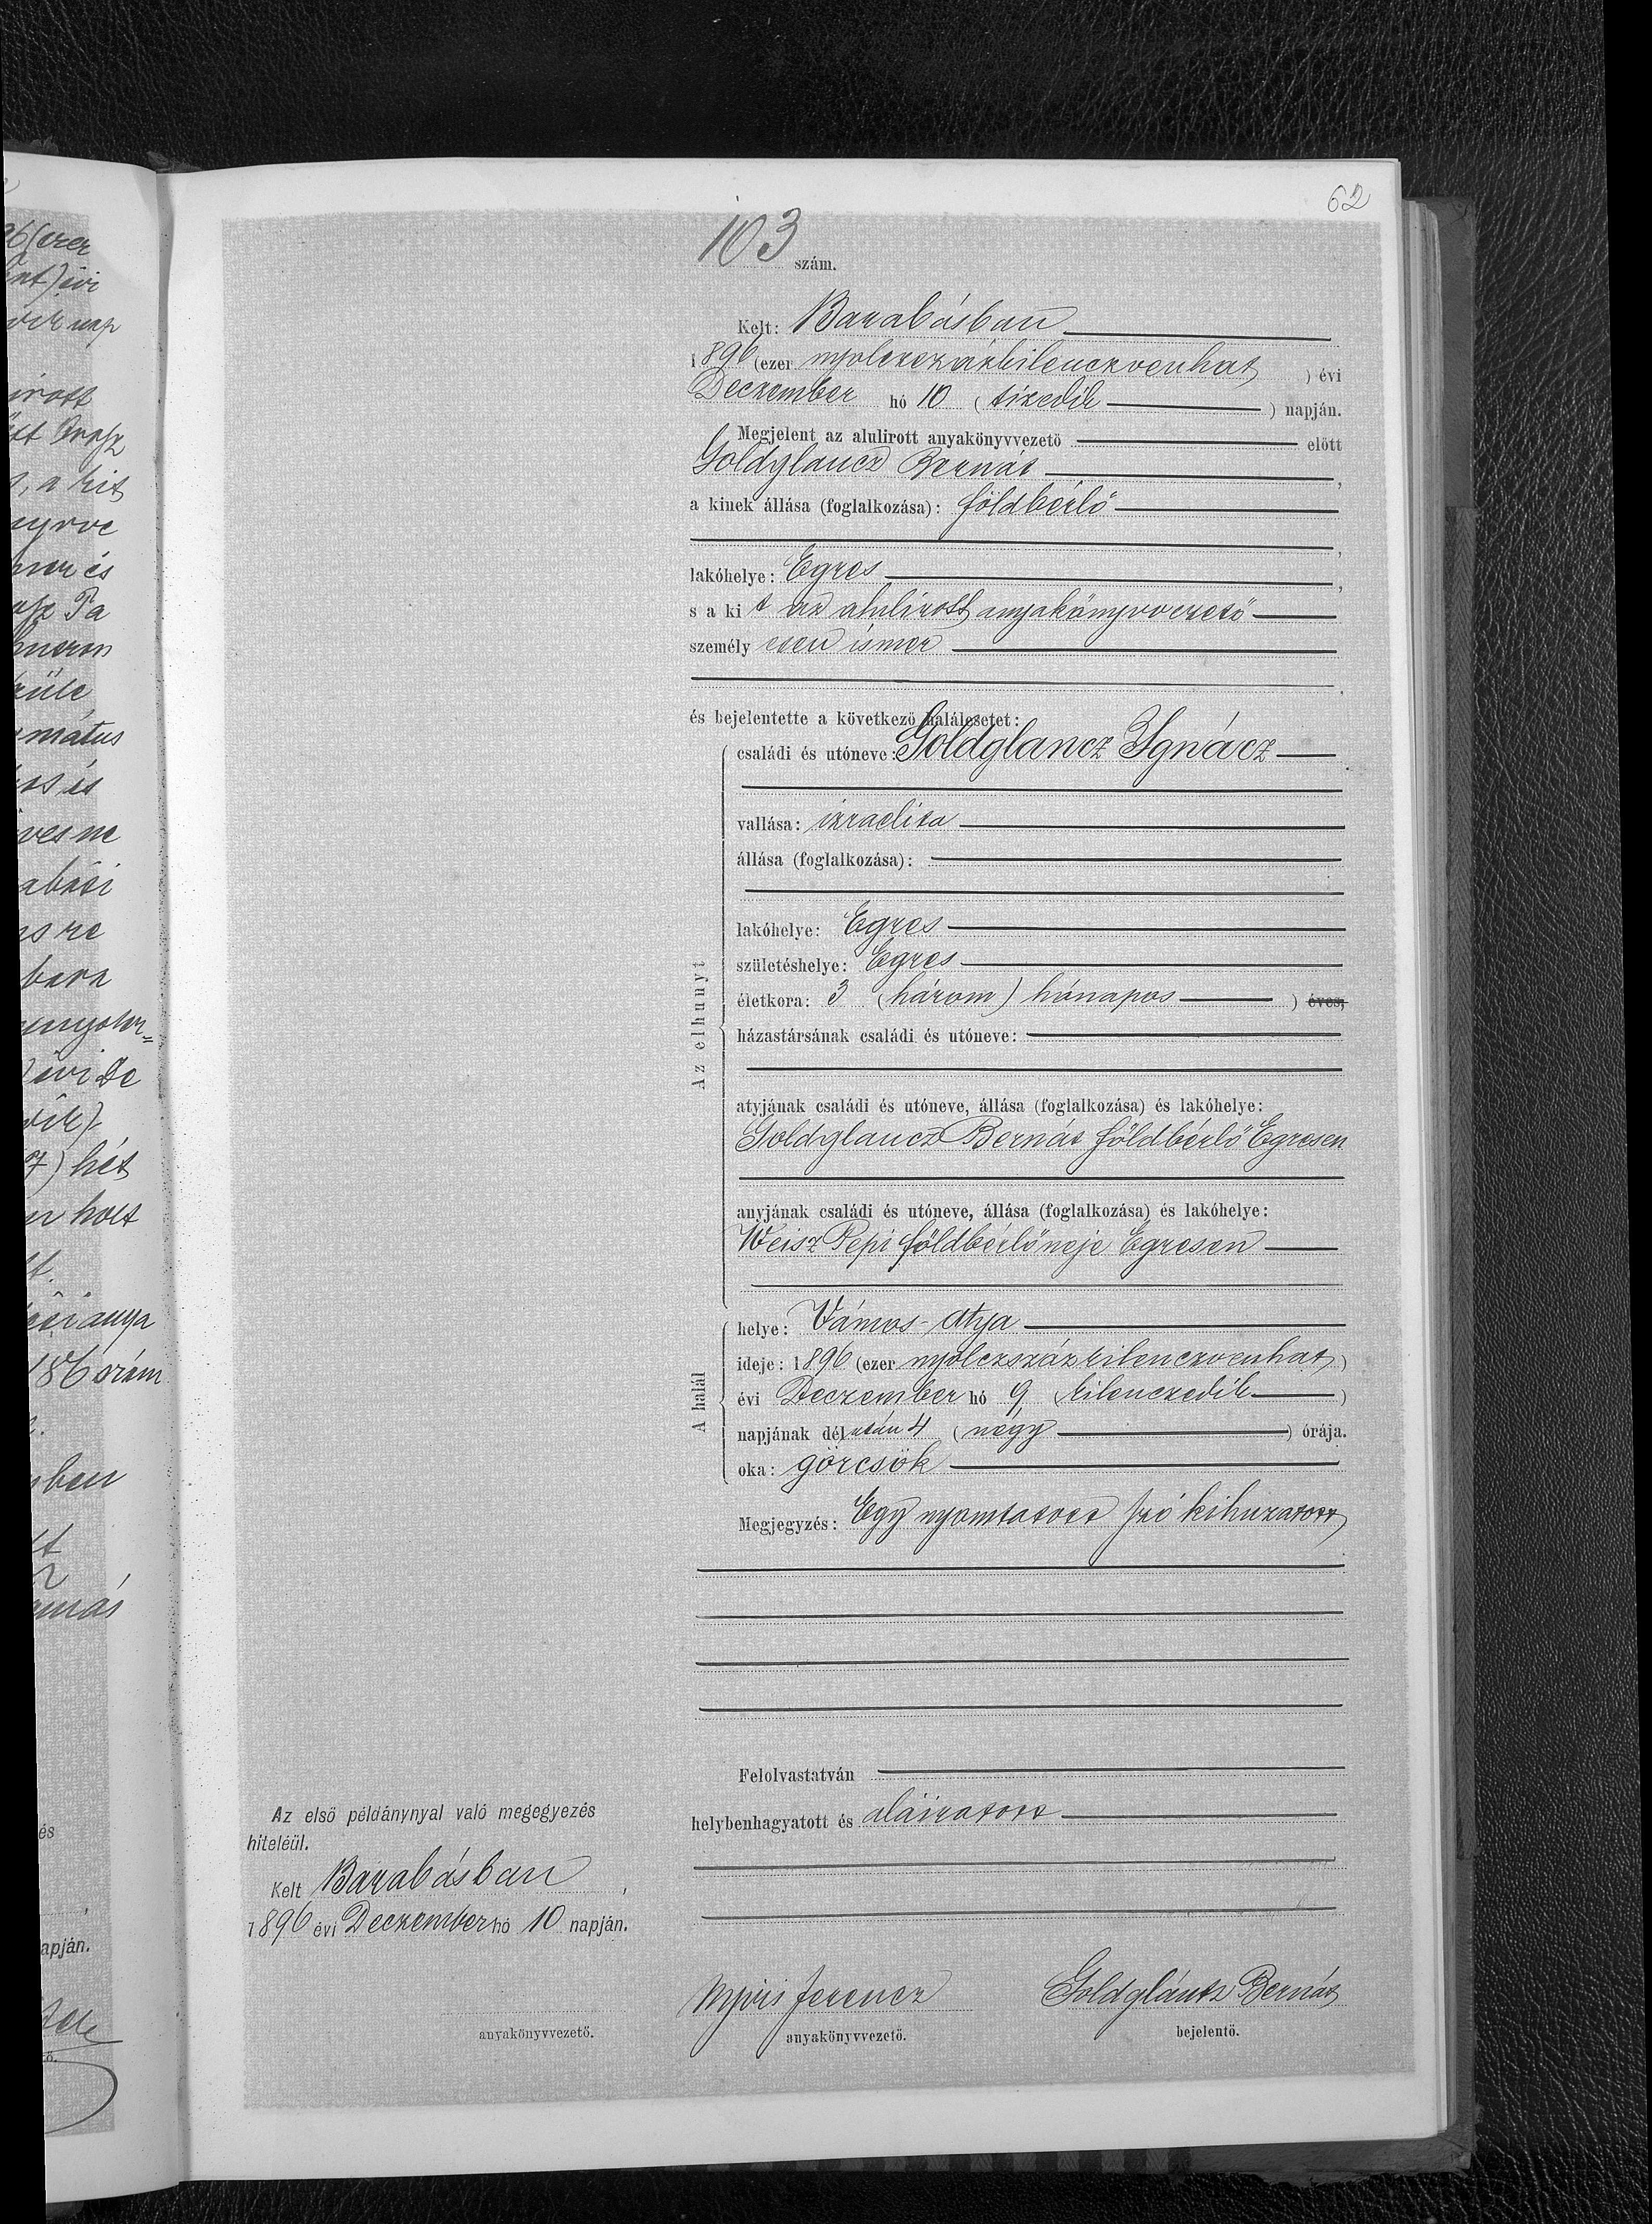 62
103 szám.
Kelt: Barabásban
1896 (ezer nyolczszázkilenczvenhat) évi
Deczember hó 10 (tizedik) napján.
Megjelent az alulirott anyakönyvvezető előtt
Goldglancz Bernát,
a kinek állása (foglalkozása): földbérlő
,
lakóhelye: Egres,
s a kit az alulirott anyakönyvvezető
személyesen ismer
.
és bejelentette a következő halálesetet:
Az elhunyt
családi és utóneve: Goldglancz Ignácz
vallása: izraelita
állása (foglalkozása):
lakóhelye: Egres
születéshelye: Egres
életkora: 3 (három) hónapos ) éves,
házastársának családi és utóneve:
atyjának családi és utóneve, állása (foglalkozása) és lakóhelye:
Goldglancz Bernát földbérlő Egresen
anyjának családi és utóneve, állása (foglalkozása) és lakóhelye:
Weisz Pepi földbérlőneje Egresen
A halál
helye: Vámos-Atya
ideje: 1896 (ezer nyolczszázkilenczvenhat)
évi Deczember hó 9 (kilenczedik)
napjának délután 4 (négy) órája.
oka: görcsök
Megjegyzés: Egy nyomtatott szó kihuzatott
Felolvastatván
helybenhagyatott és aláiratott
Az első példánynyal való megegyezés
hiteléül.
Kelt Barabásban,
1896 évi Deczember hó 10 napján.
anyakönyvvezető.
Ferencz
anyakönyvvezető.
Goldglántz Bernát
bejelentő.